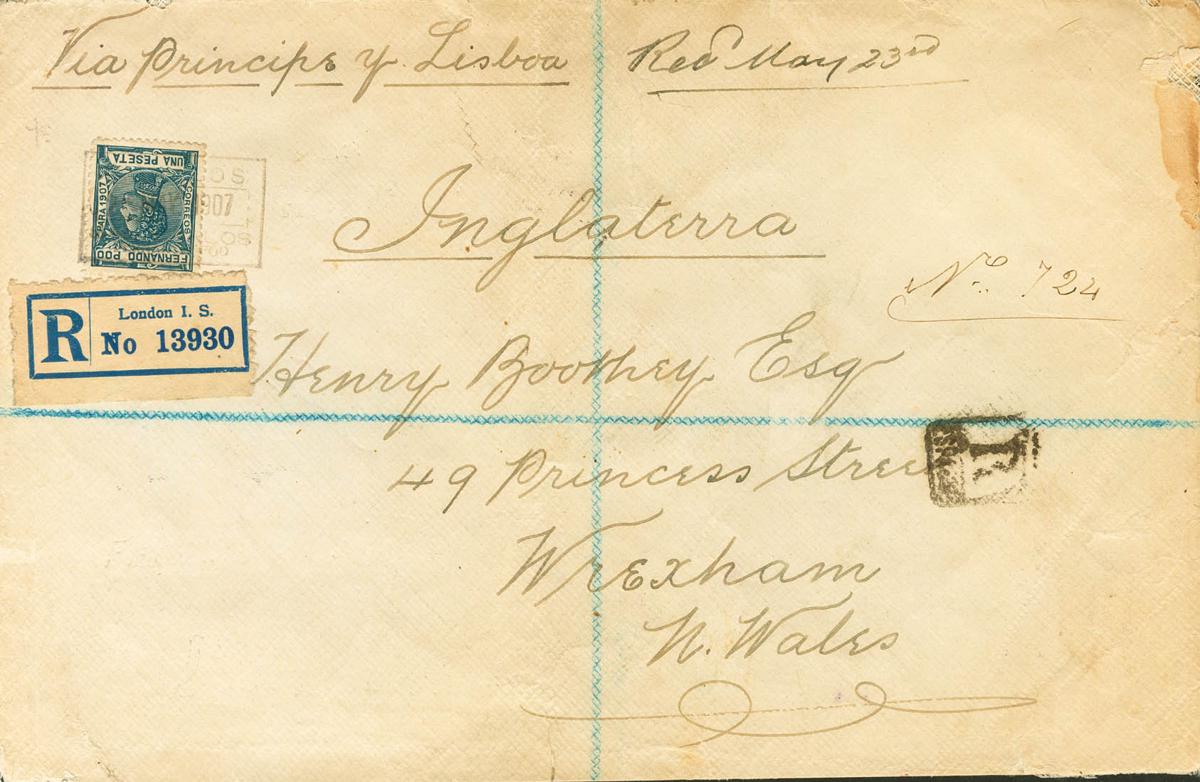 Via Principe y Lisboa
Recd May 23rd
UNA PESETA
PARA 1907
CORREOS
FERNANDO POO
OS
1907
OS
Inglaterra
No. 724
R
London I. S.
No 13930
Henry Boothey Esq
49 Princess Stree
R
Wrexham
N. Wales